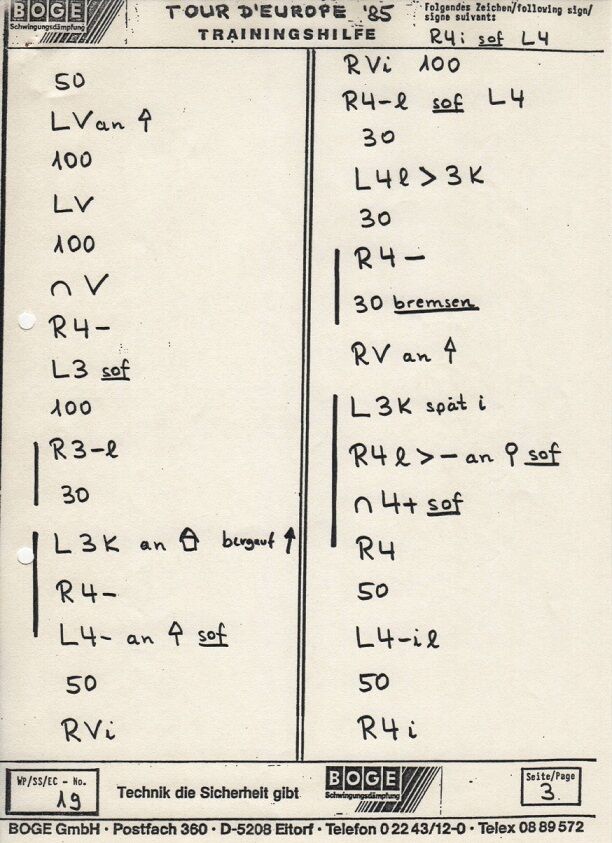 BOGE
Schwingungsdämpfung
TOUR D'EUROPE '85
TRAININGSHILFE
Folgendes Zeichen/following sign/
signe suivant:
R4i sof L4
50
LV an ↑
100
LV
100
∩ V
R4-
L3 sof
100
R3-l
30
L3K an ⇧ bergauf ↑
R4-
L4- an ↑ sof
50
RVi
RVi 100
R4-l sof L4
30
L4l > 3K
30
R4-
30 bremsen
RV an ↑
L3K spät i
R4l > - an ⚲ sof
∩ 4+ sof
R4
50
L4-il
50
R4i
WP/SS/EC - No.
19
Technik die Sicherheit gibt
BOGE
Schwingungsdämpfung
Seite/Page
3
BOGE GmbH · Postfach 360 · D-5208 Eitorf · Telefon 0 22 43/12-0 · Telex 08 89 572